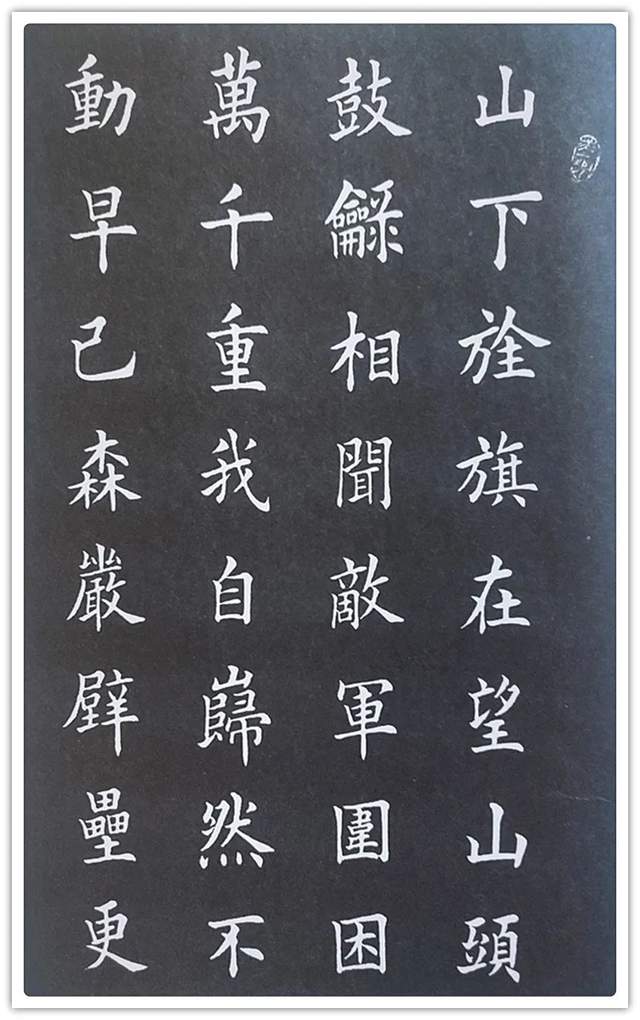 山下旌旗在望山頭
鼓龣相聞敵軍圍困
萬千重我自巋然不
動早已森嚴壁壘更